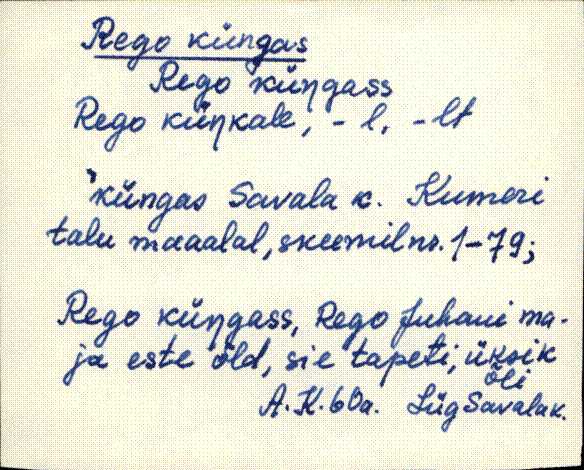 Rego küngas
Rego küŋgass
Rego küŋkale, - l, - lt
küngas Savala k. Kumeri
talu maaalal, skeemil nr. 1-79;
Rego küŋgass, Rego Juhani ma-
ja este õld, sie tapeti, üksik
õli
A.K. 60a. Lüg Savala k.